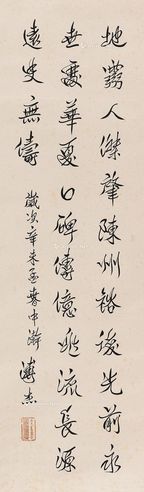 地靈人傑肇陳州裕後光前永
世優華夏口碑傳億兆流長源
遠史無儔
歲次辛未孟春中澣
溥杰